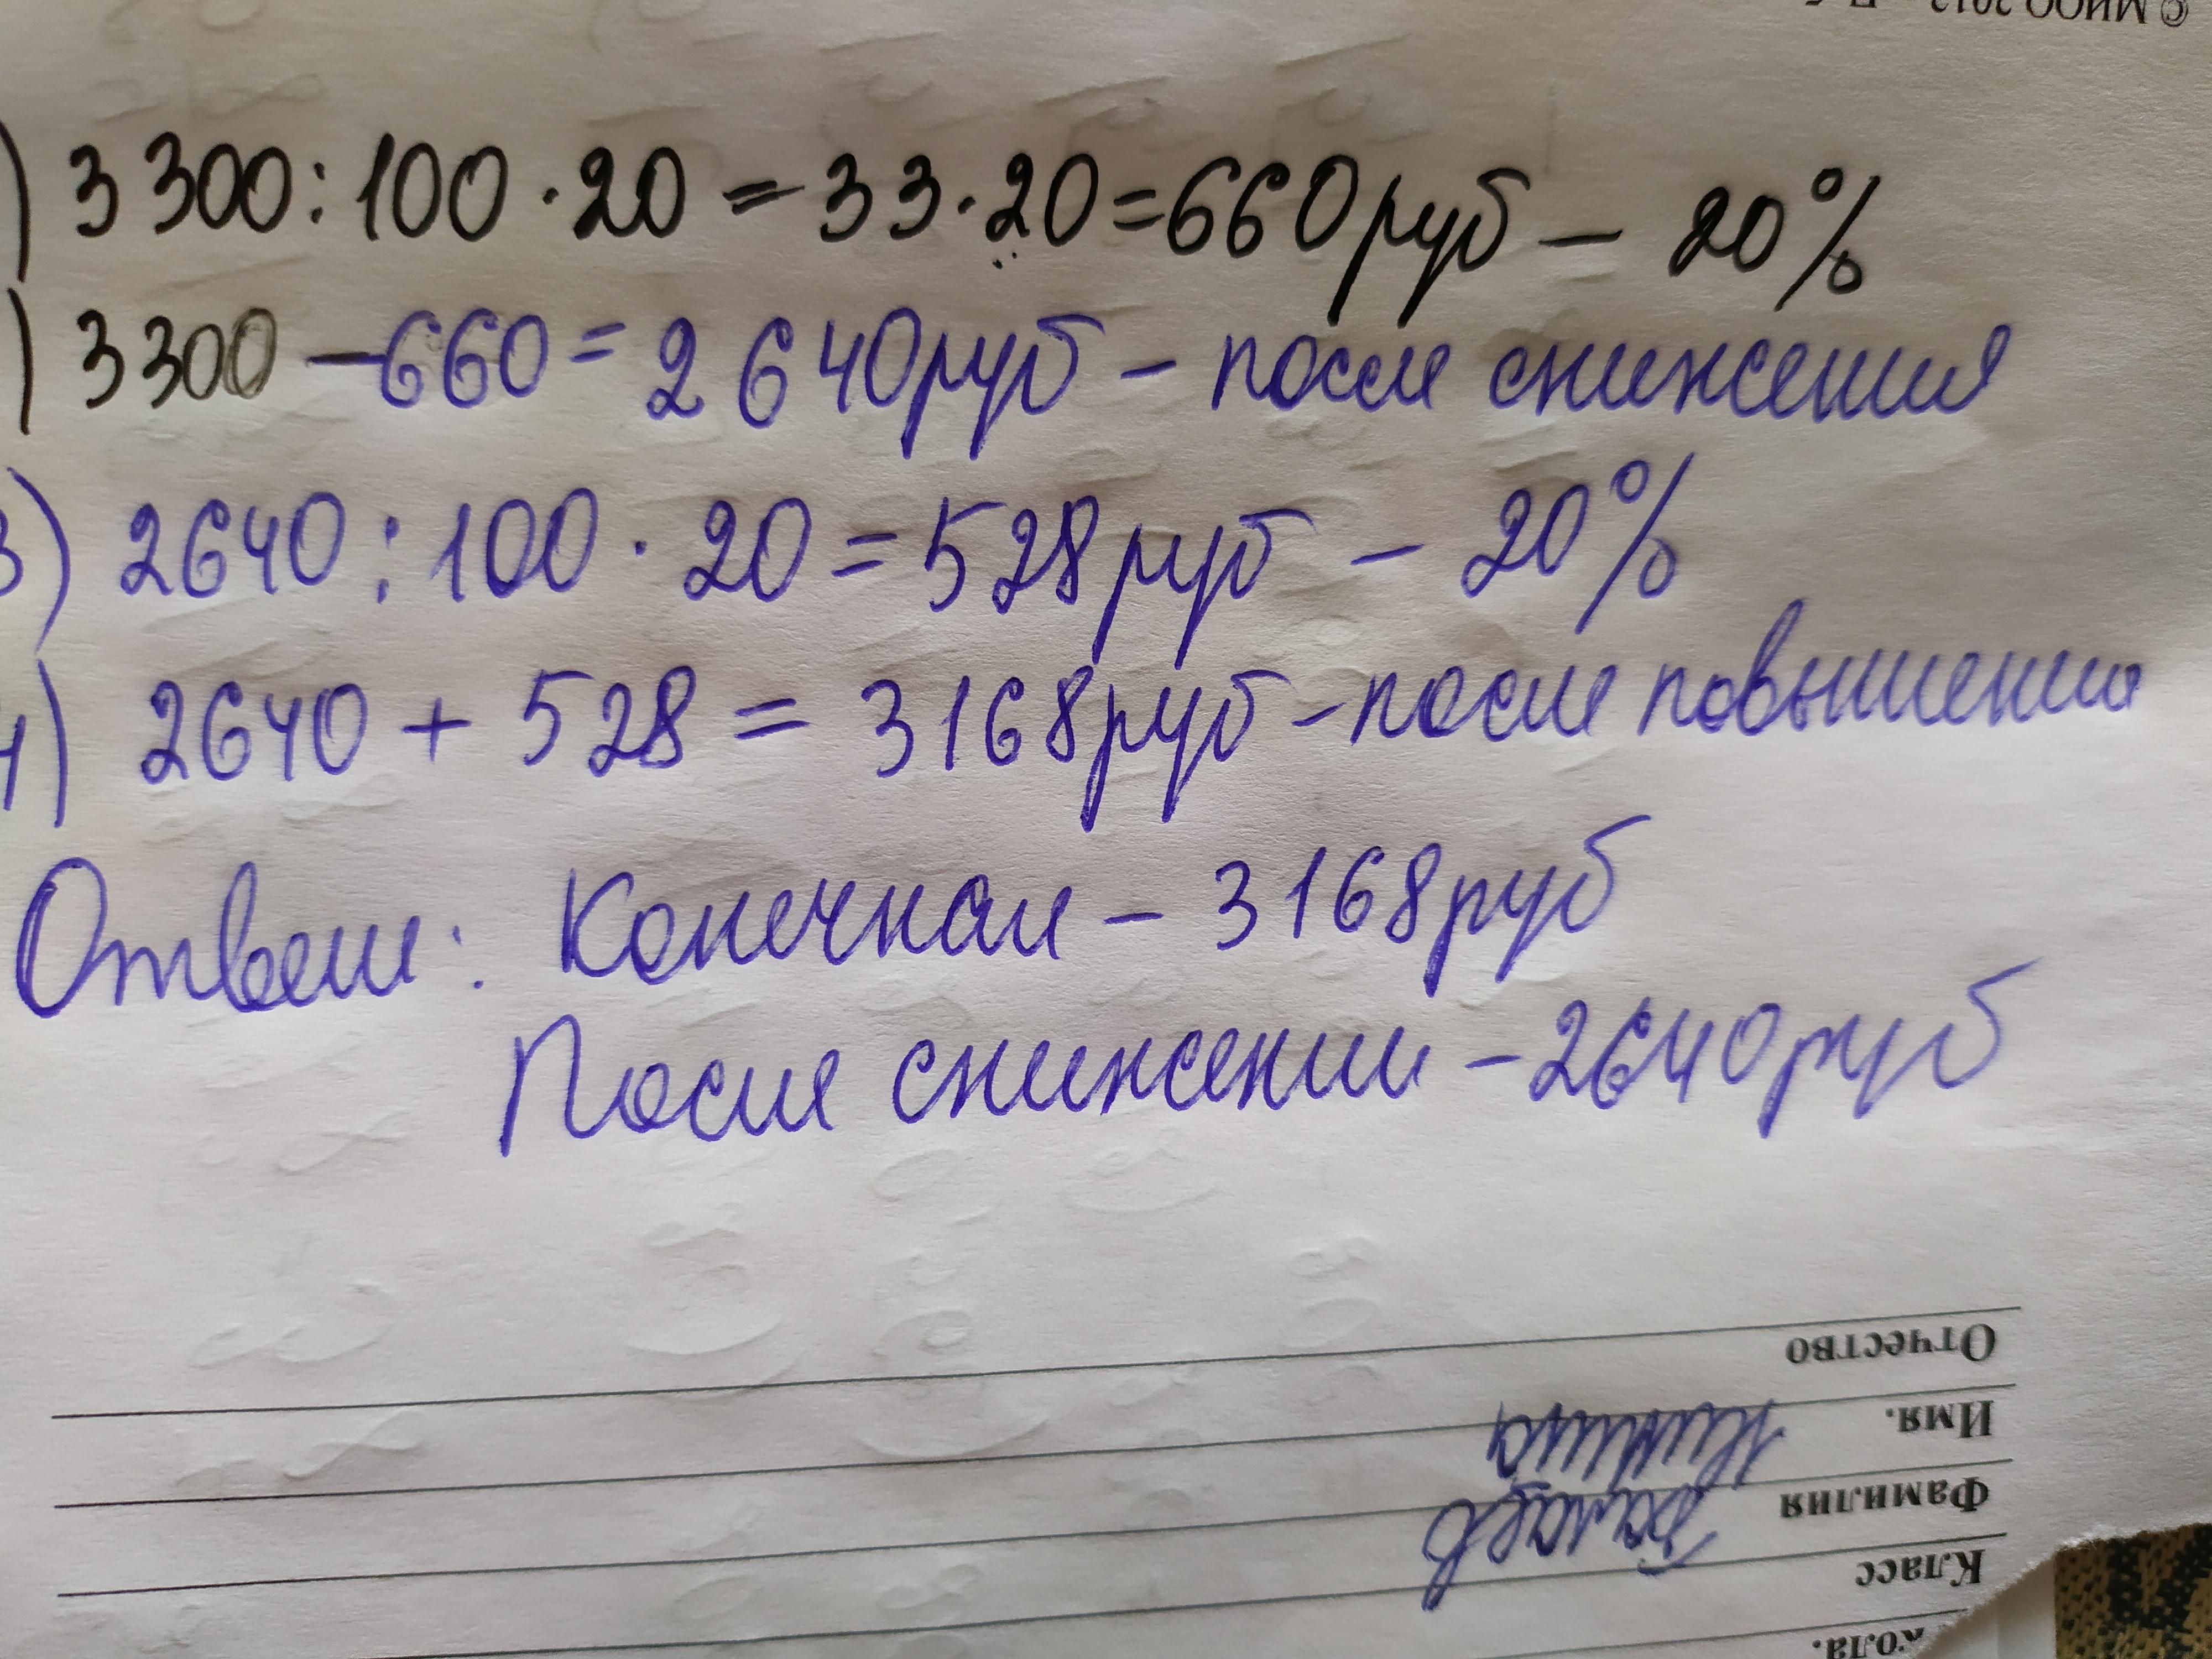 © МИОО 2012
) 3300:100·20=33·20=660руб – 20%
) 3300–660=2640руб – после снижения
3) 2640:100·20=528руб – 20%
4) 2640+528=3168руб – после повышения
Ответ: Конечная – 3168руб
После снижении – 2640руб
Отчество
Имя. Никита
Фамилия
Класс
кола.